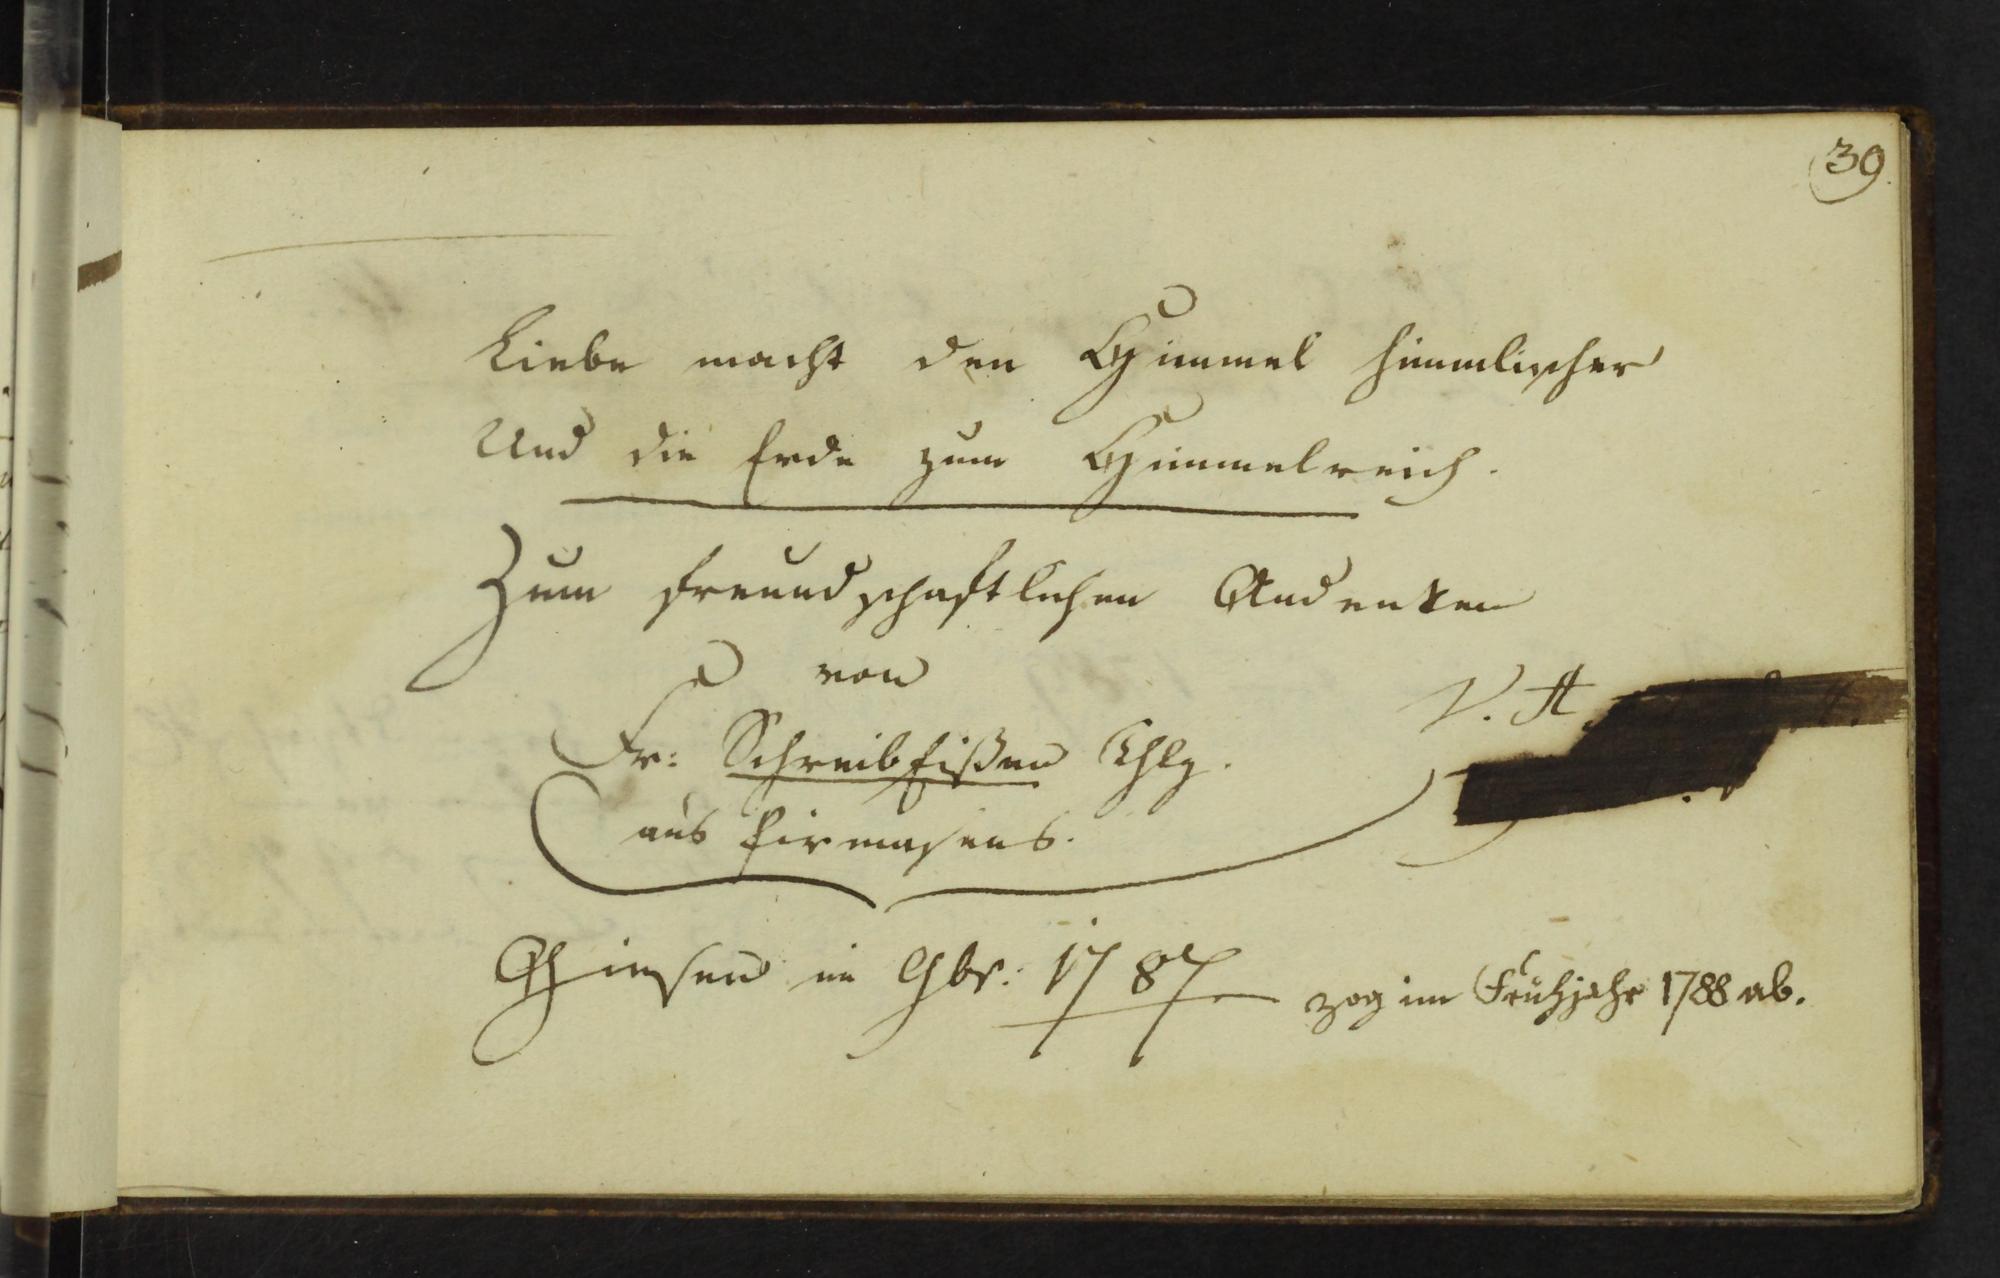 39.
Liebe macht den Himmel himmlischer
Und die Erde zum Himmelreich.
Zum freundschaftlichen Andenken
von
V. A.
Fr: Schreibeißen Thlg.
aus Pirmasens.
Giesen im 9br: 1787
zog im Frühjahr 1788 ab.